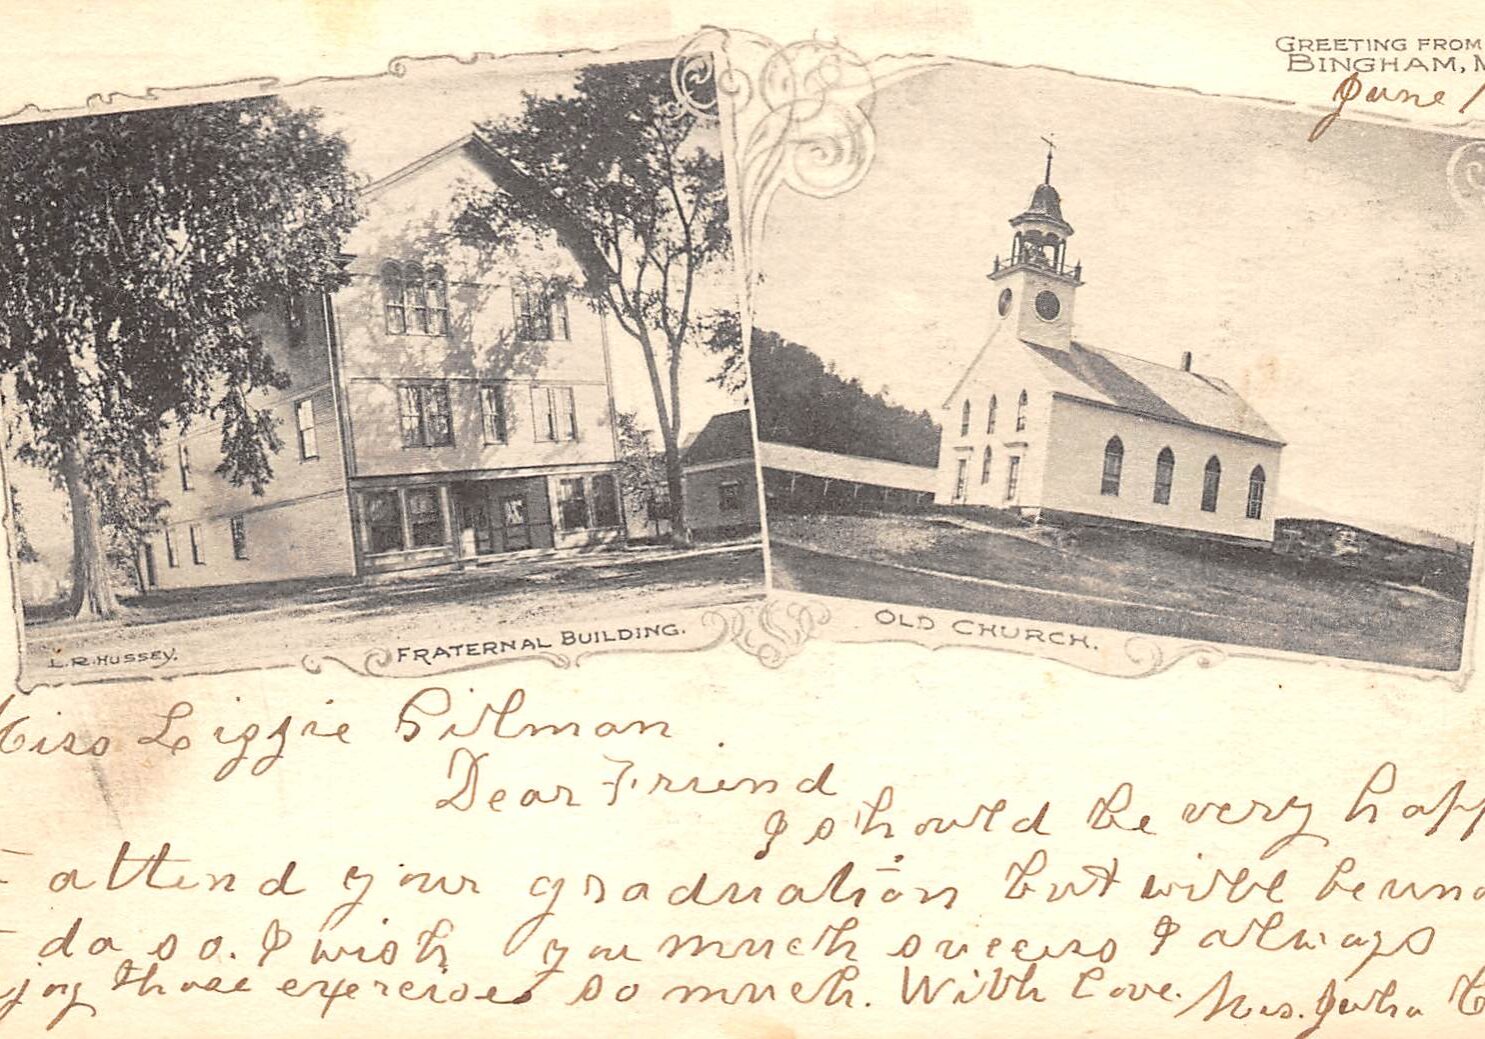 GREETING FROM
BINGHAM, M
June 1
L.R. HUSSEY.
FRATERNAL BUILDING.
OLD CHURCH.
Miss Lizzie Gilman.
Dear Friend
I should be very happ
attend your graduation but will be una
do so. I wish you much success I always
joy those exercises so much. With Love. Mrs. Julia